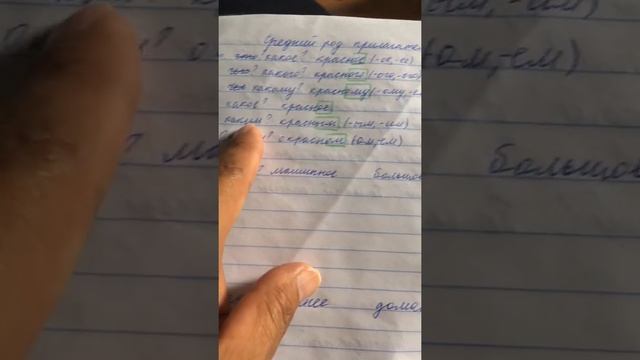 Средний род прилагател
какое? красное (-ое, -ее)
какого? красного (-ого, -его)
какому? красному (-ому, -е
каков? красное
каким? красным (-ым, -им)
о красном (ом, ем)
? машинное большо
нее дома